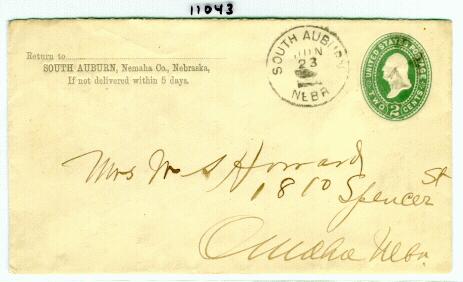 11043
Return to
SOUTH AUBURN, Nemaha Co., Nebraska,
If not delivered within 5 days.
SOUTH AUBURN
JUN
23
NEBR
UNITED STATES POSTAGE
TWO 2 CENTS
Mrs Wm S Howard
1810 Spencer St
Omaha Nebr